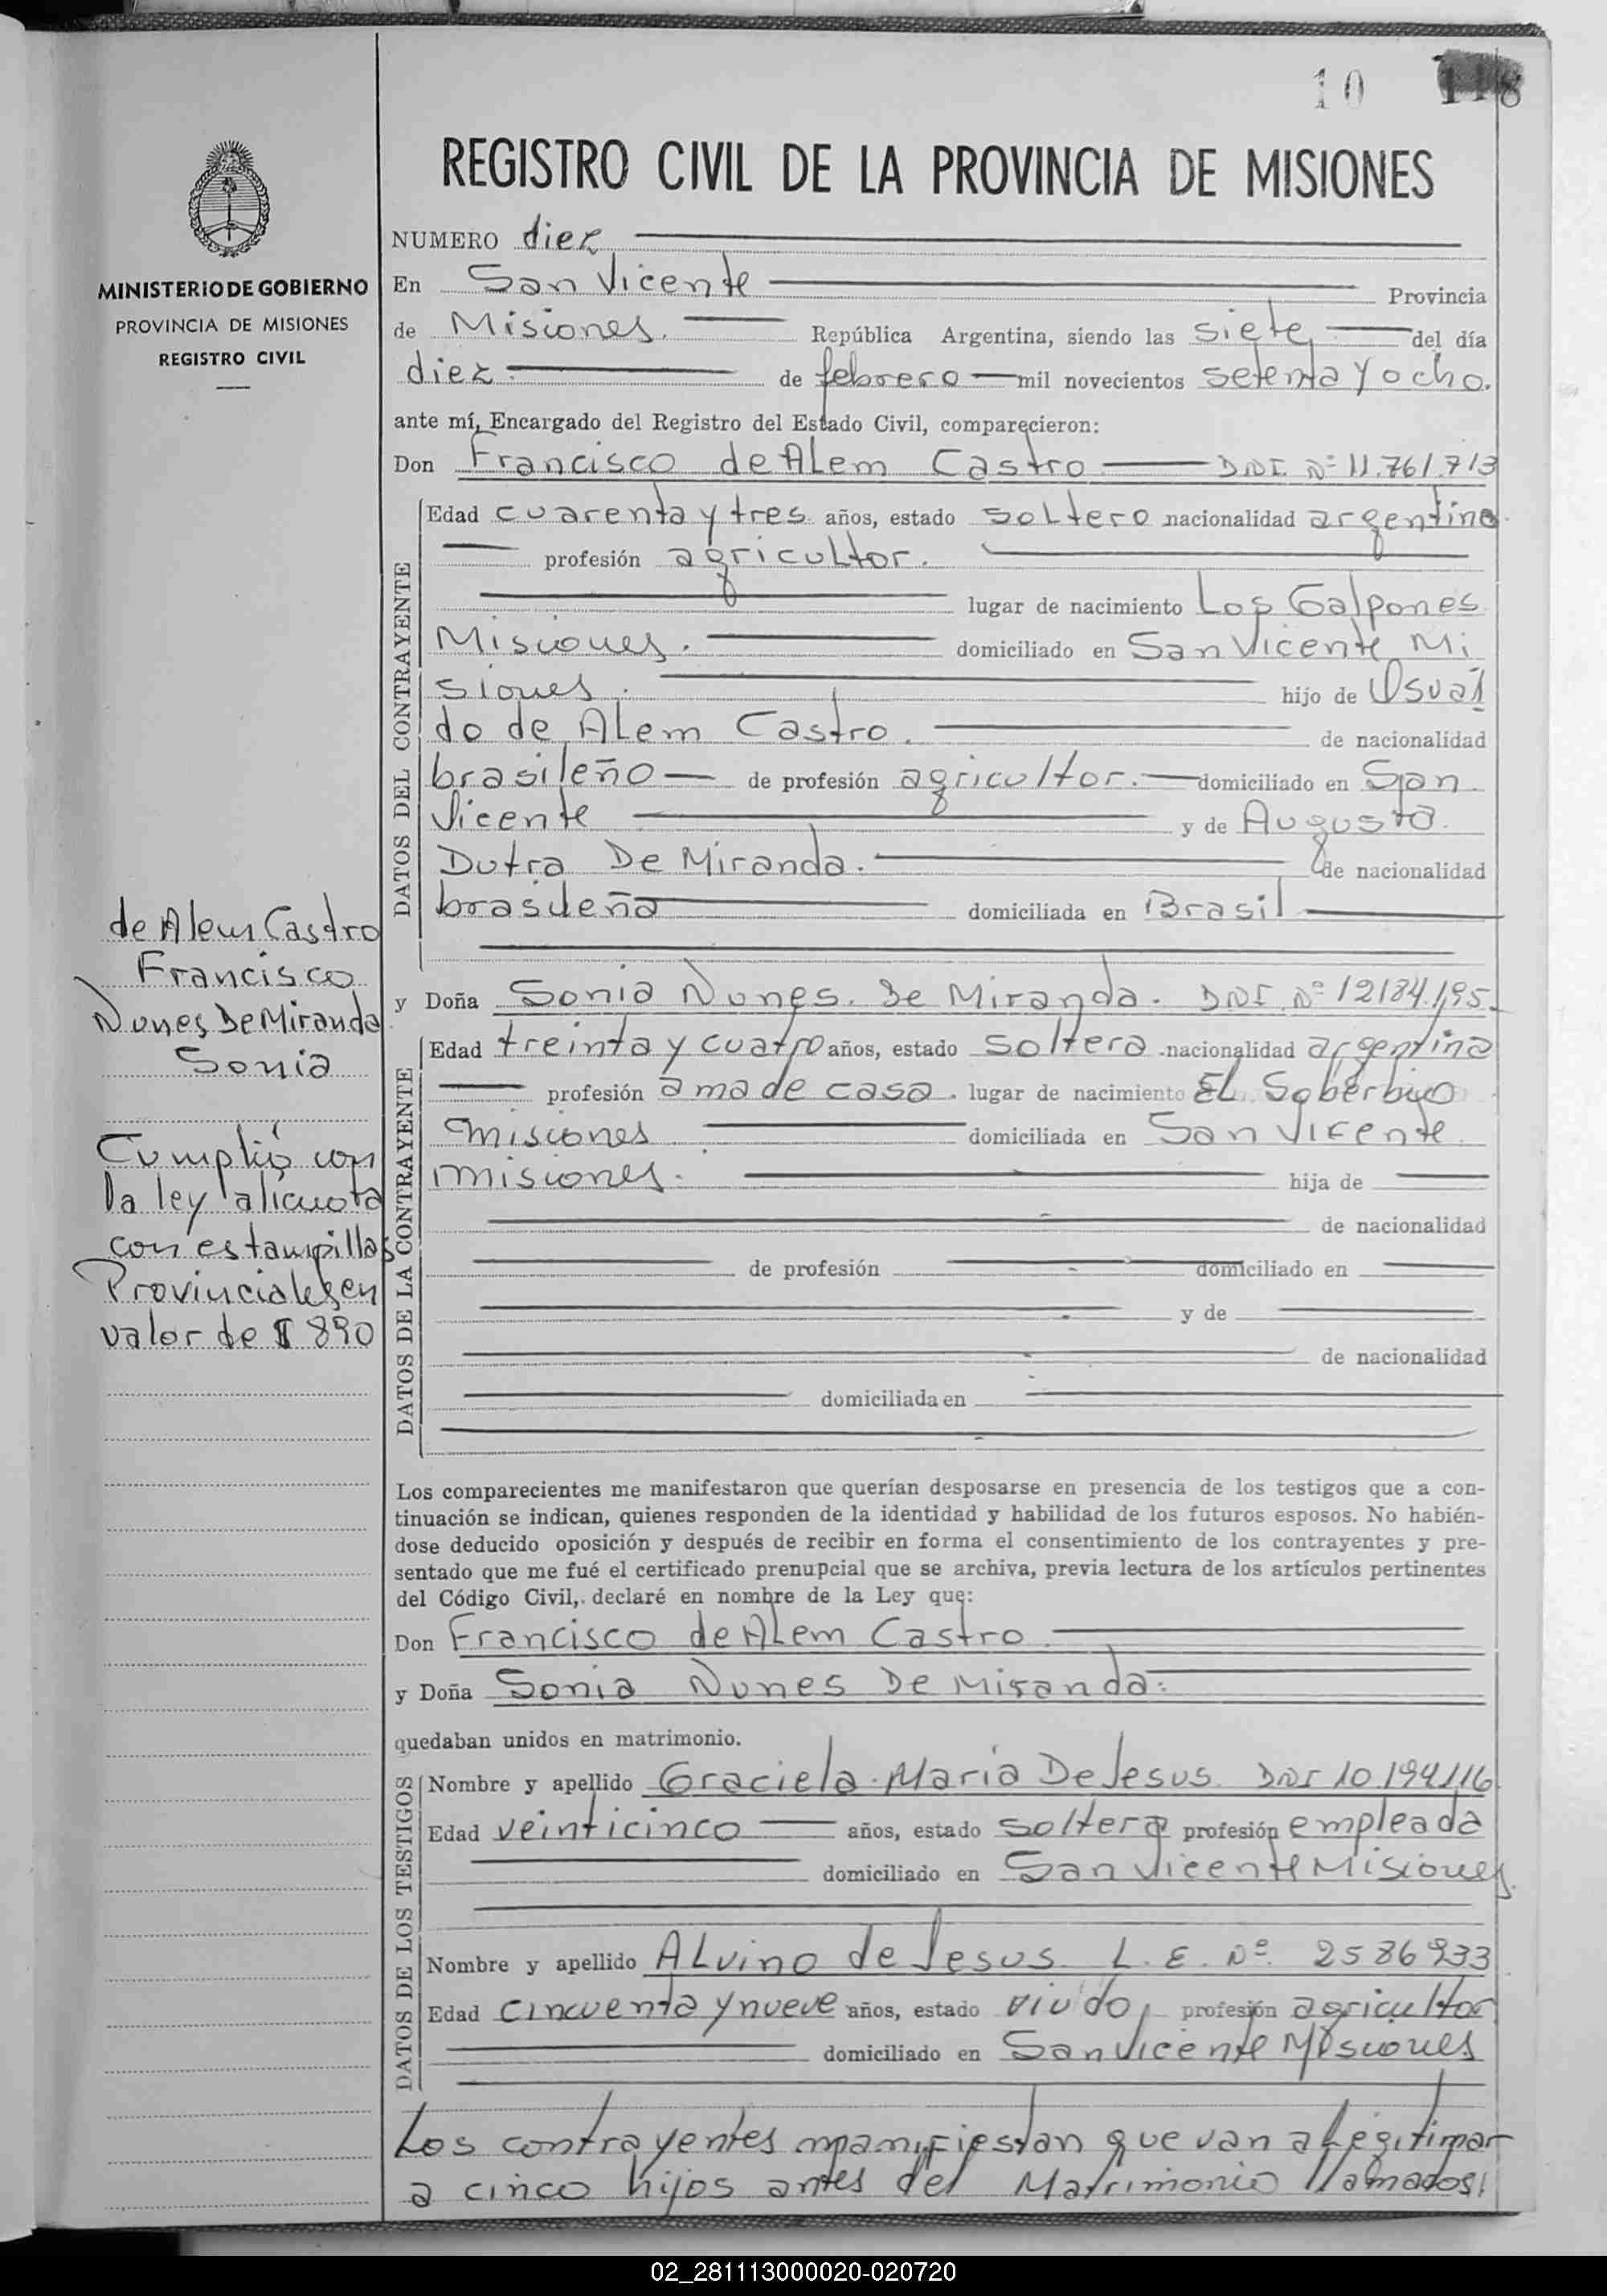 10 118
REGISTRO CIVIL DE LA PROVINCIA DE MISIONES
MINISTERIO DE GOBIERNO
PROVINCIA DE MISIONES
REGISTRO CIVIL
NUMERO diez
En San Vicente Provincia
de Misiones. República Argentina, siendo las siete del día
diez de febrero mil novecientos setenta y ocho.
ante mí, Encargado del Registro del Estado Civil, comparecieron:
Don Francisco de Alem Castro DNI. Nº 11.761.713
DATOS DEL CONTRAYENTE
Edad cuarenta y tres años, estado soltero nacionalidad argentino.
profesión agricultor.
lugar de nacimiento Los Galpones
Misiones. domiciliado en San Vicente Mi
siones. hijo de Osval
do de Alem Castro. de nacionalidad
brasileño de profesión agricultor. domiciliado en San
Vicente y de Augusta
Dutra De Miranda. de nacionalidad
brasileña domiciliada en Brasil
de Alem Castro
Francisco
Nunes De Miranda
Sonia
Cumplió con
la ley alicuota
con estampillas
Provinciales en
valor de $ 890
y Doña Sonia Nunes. De Miranda. DNI. Nº 12184.195.
DATOS DE LA CONTRAYENTE
Edad treinta y cuatro años, estado soltera nacionalidad argentina
profesión ama de casa. lugar de nacimiento EL Soberbio
misiones domiciliada en San Vicente
misiones. hija de
de nacionalidad
de profesión domiciliado en
y de
de nacionalidad
domiciliada en
Los comparecientes me manifestaron que querían desposarse en presencia de los testigos que a con-
tinuación se indican, quienes responden de la identidad y habilidad de los futuros esposos. No habién-
dose deducido oposición y después de recibir en forma el consentimiento de los contrayentes y pre-
sentado que me fué el certificado prenupcial que se archiva, previa lectura de los artículos pertinentes
del Código Civil, declaré en nombre de la Ley que:
Don Francisco de Alem Castro.
y Doña Sonia Nunes De Miranda.
quedaban unidos en matrimonio.
DATOS DE LOS TESTIGOS
Nombre y apellido Graciela Maria De Jesus. DNI 10.194.116
Edad veinticinco años, estado soltera profesión empleada
domiciliado en San Vicente Misiones.
Nombre y apellido ALvino de Jesus L. E. Nº 2586933
Edad cincuenta y nueve años, estado viudo, profesión agricultor
domiciliado en San Vicente Misiones
Los contrayentes manifiestan que van a legitimar
a cinco hijos antes del Matrimonio llamados:
02_281113000020-020720